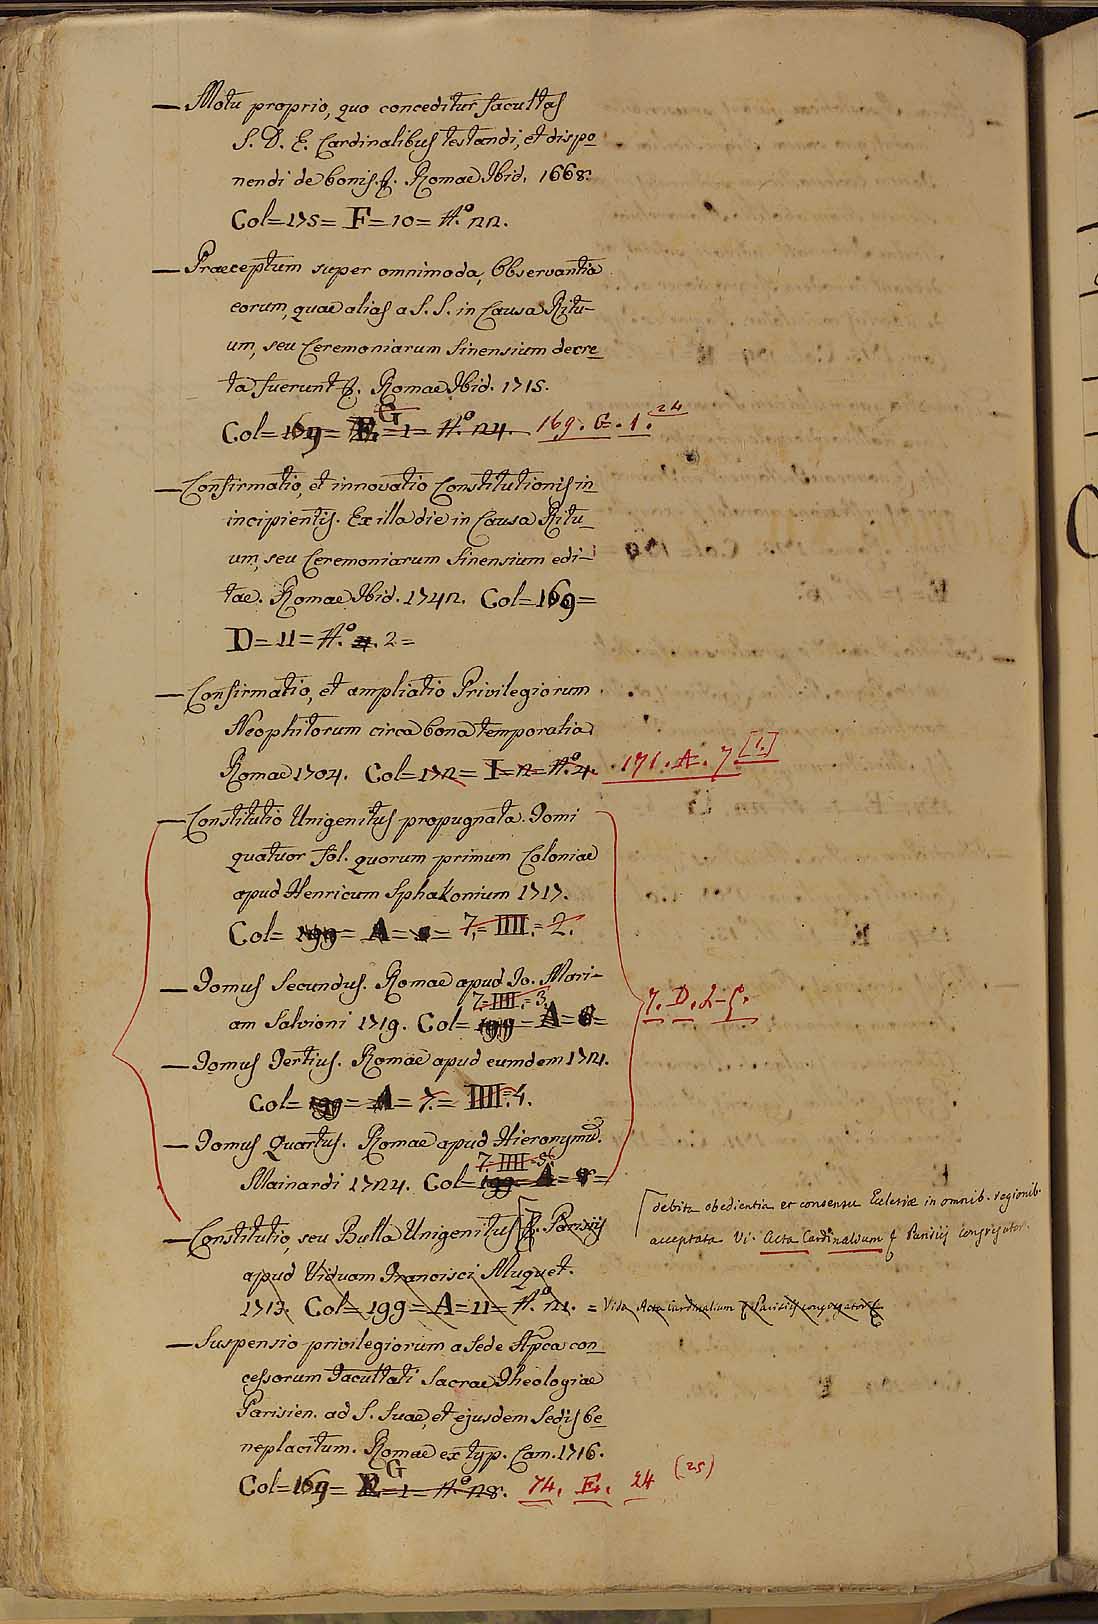 — Motu proprio, quo conceditur facultas
S. D. E. Cardinalibus testandi, et dispo
nendi de bonis. &. Romae Ibid. 1668.
Col=175= F=10= N.º 22.
— Praeceptum super omnimoda, Observantia
eorum, quae alias a S. S. in Causa Ritu-
um, seu Ceremoniarum Sinensium decre
ta fuerunt &. Romae Ibid. 1715.
Col=169= G =1= N.º 24. 169. G. 1. 24
— Confirmatio, et innovatio Constitutionis in
incipientis. Ex illa die in Causa Ritu-
um, seu Ceremoniarum Sinensium edi-
tae. Romae Ibid. 1742. Col=169=
D=11= N.º 2=
— Confirmatio, et ampliatio Privilegiorum
Neophitorum circa bona temporalia
Romae 1704. Col=172= I=2= N.º 4. 171. A. 7. [1.]
— Constitutio Unigenitus propugnata. Tomi
quatuor fol. quorum primum Coloniae
apud Henricum Sphakonium 1717.
Col= 199= A= 7.= IIII.= 2.
— Tomus Secundus. Romae apud Io. Mari-
7.= IIII.= 3.
am Salvioni 1719. Col= 199= A=8=
7. D. 2-5.
— Tomus Tertius. Romae apud eumdem 1721.
Col= 199= A= 7.= IIII.= 4.
— Tomus Quartus. Romae apud Hieronymũ.
7. IIII=5
Mainardi 1724. Col= 199= A= 8=
— Constitutio, seu Bulla Unigenitus [&. Parisiis
[debita obedientia et consensu Eclesiae in omnib. regionib.
acceptata Vi. Acta Cardinalium &. Parisiis congregator.
apud Viduam Francisci Muguet.
1713. Col=199= A=11= N.º 21. = Vide Acta Cardinalium &. Parisiis congregator &
— Suspensio privilegiorum a Sede Apca con
cessorum Facultati Sacrae Theologiae
Parisien. ad S. Suae, et ejusdem Sedis be
neplacitum. Romae ex typ. Cam. 1716.
Col=169= G =1= N.º 28. 74. E. 24 (25)